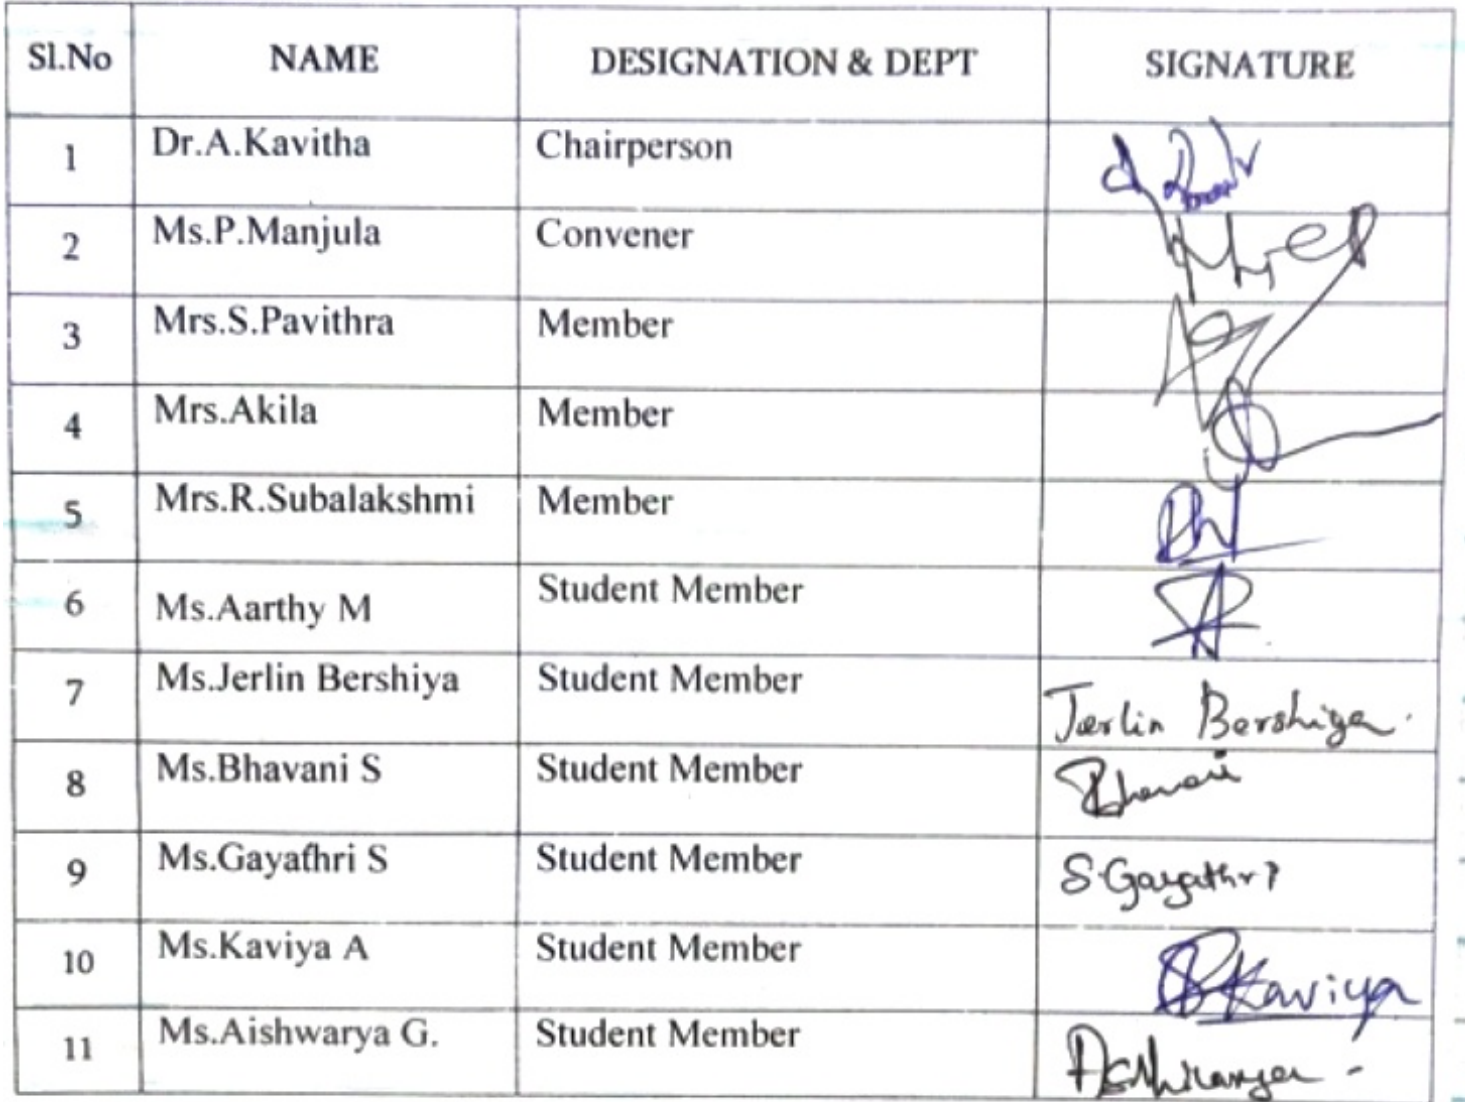 Sl.No NAME DESIGNATION & DEPT SIGNATURE
1 Dr.A.Kavitha Chairperson
2 Ms.P.Manjula Convener
3 Mrs.S.Pavithra Member
4 Mrs.Akila Member
5 Mrs.R.Subalakshmi Member
6 Ms.Aarthy M Student Member
7 Ms.Jerlin Bershiya Student Member Jerlin Bershiya.
8 Ms.Bhavani S Student Member Bhavani
9 Ms.Gayathri S Student Member S.Gayathri
10 Ms.Kaviya A Student Member Kaviya
11 Ms.Aishwarya G. Student Member